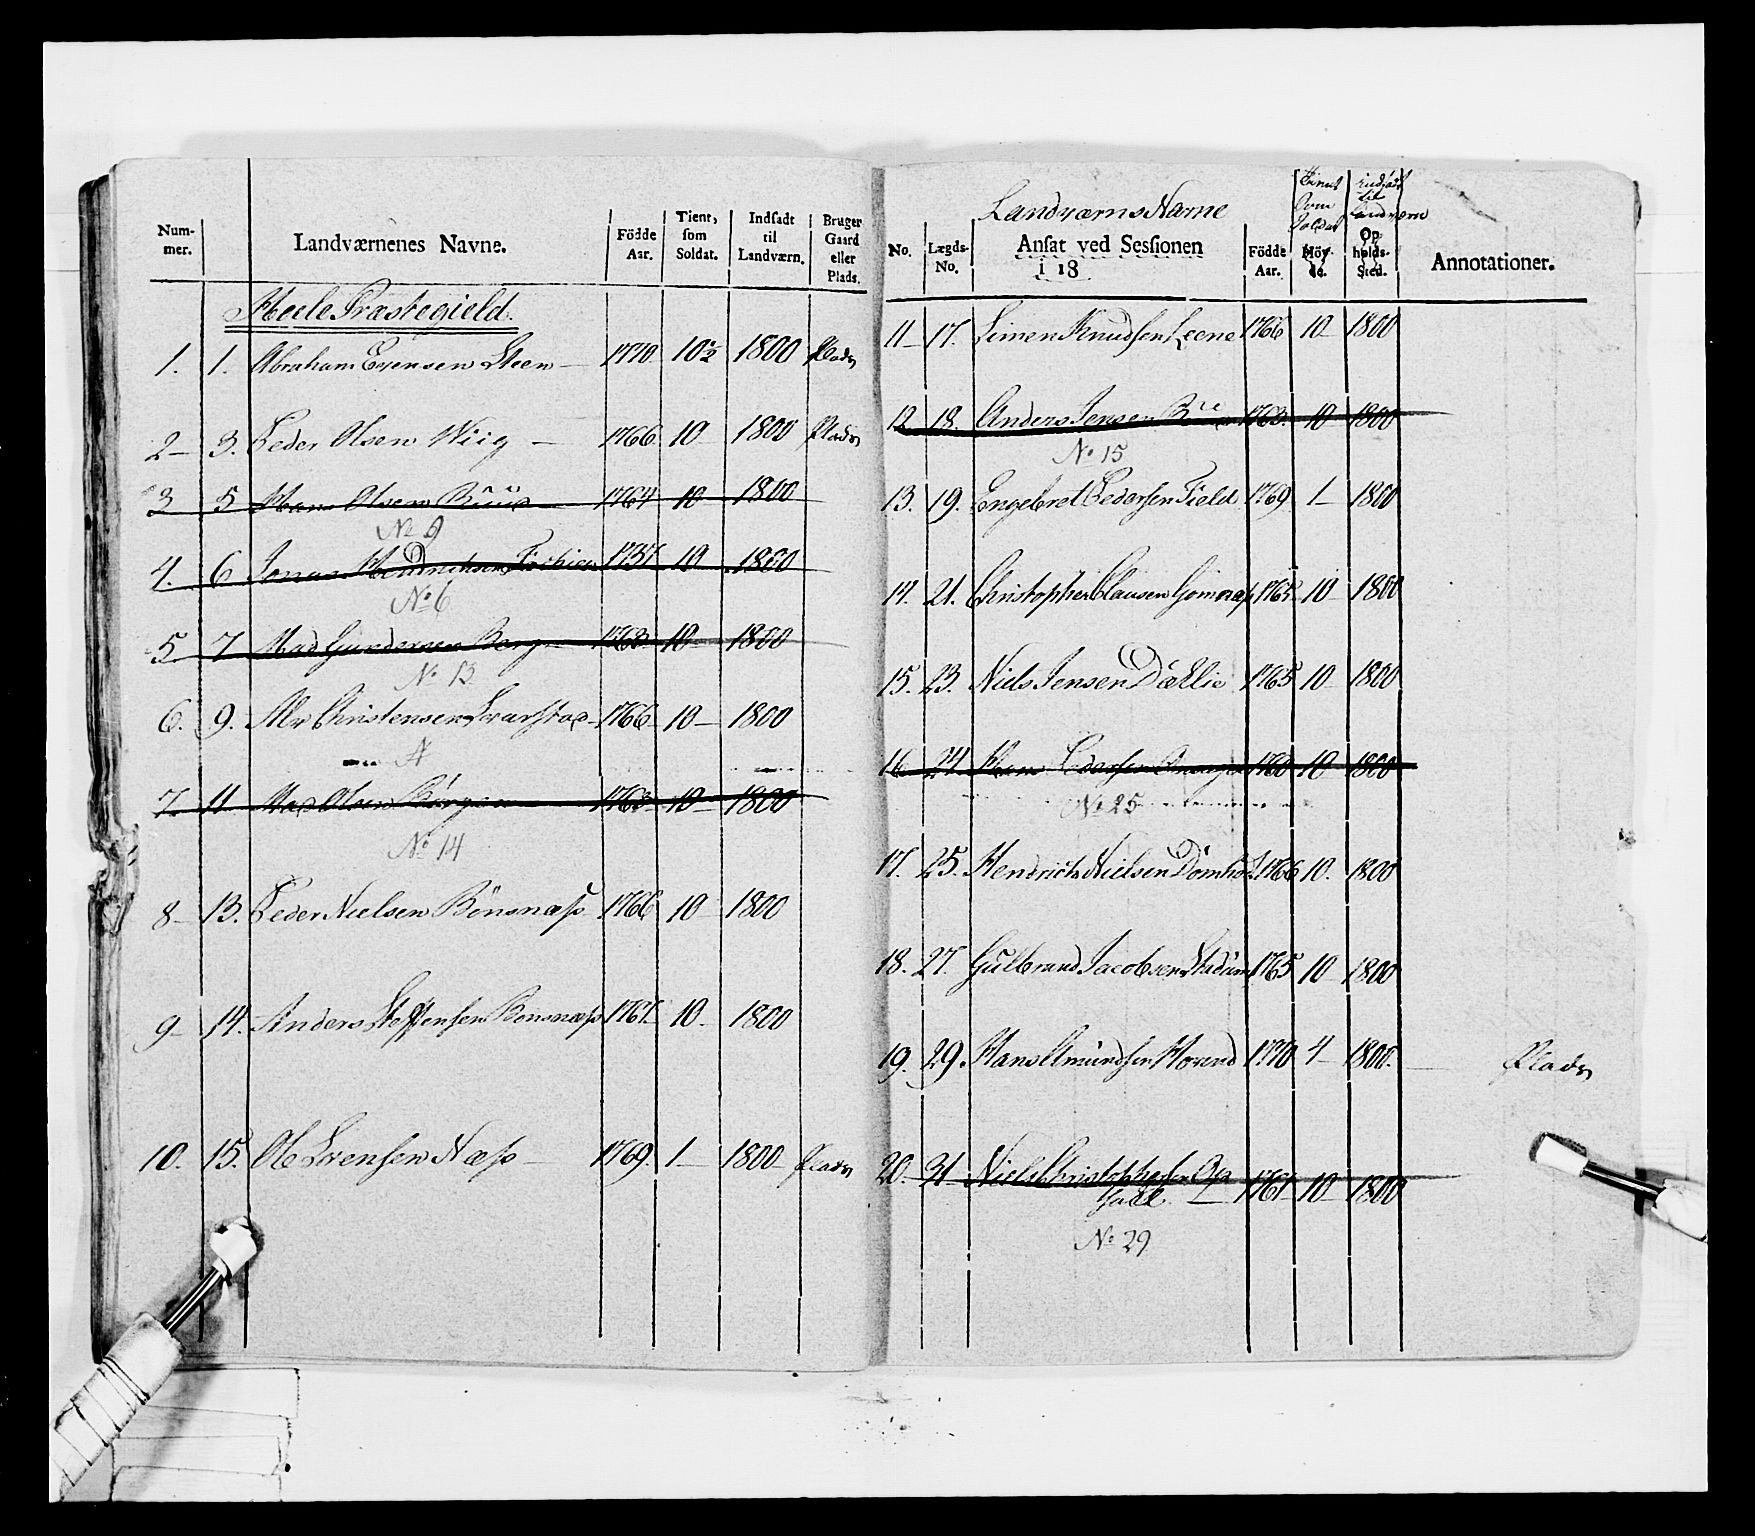 Num-
mer.
Landværnenes Navne.
Födde
Aar.
Tient,
som
Soldat.
Indsadt
til
Landværn.
Bruger
Gaard
eller
Plads.
Hole Præstegield.
1. 1. Abraham Evensen Steen — 1770. 10½ 1800 Plads
2 – 3. Peder Olsen Wiig — 1766 10 1800 Plads
3 5 Hans Olsen 1764 10 1800
No 9
4. 6 Jonas 1757 10 1800
No 6
5. 7 Mads Gundersen Berg 1763 10 1800
No 13
6. 9. Alv Christensen 1766 10 – 1800
7. 11 Mads Olsen 1763 10 – 1800
No 14
8 – 13. Peder Nielsen Bönsnæss 1766 10 – 1800
9 – 14. Anders Steffensen Bönsnæss 1767. 10. 1800
10. 15. Ole Svensen Næss – 1769. 1 – 1800 – Plads
Landværns Navne
No.
Lægds-
No.
Ansat ved Sessionen
i 18
Födde
Aar.
Tient
som
Soldat
Höy-
de.
indsadt
til
Landværn
Op
holds-
Sted.
Annotationer.
11 – 17. Simen Knudsen 1766 10 1800
12 18. Anders Jensen 1763. 10 1800
No 15
13. 19. Engebret Pedersen Field 1769 1 – 1800
14. 21. Christopher Clausen 1765 10 – 1800
15. 23. Niels Jensen Dæhlie 1765 10 1800
16 24 Hans Pedersen 1763 10 1800
No 25
17. 25. Hendrich Nielsen Domholt 1766 10. 1800
18. 27. Gulbrand Jacobsen Stadum 1765 10 1800
19. 29. Hans Amundsen 1770 4 – 1800. Plads
20. 31 Niels Christophersen Op
1767 10 – 1800
No 29